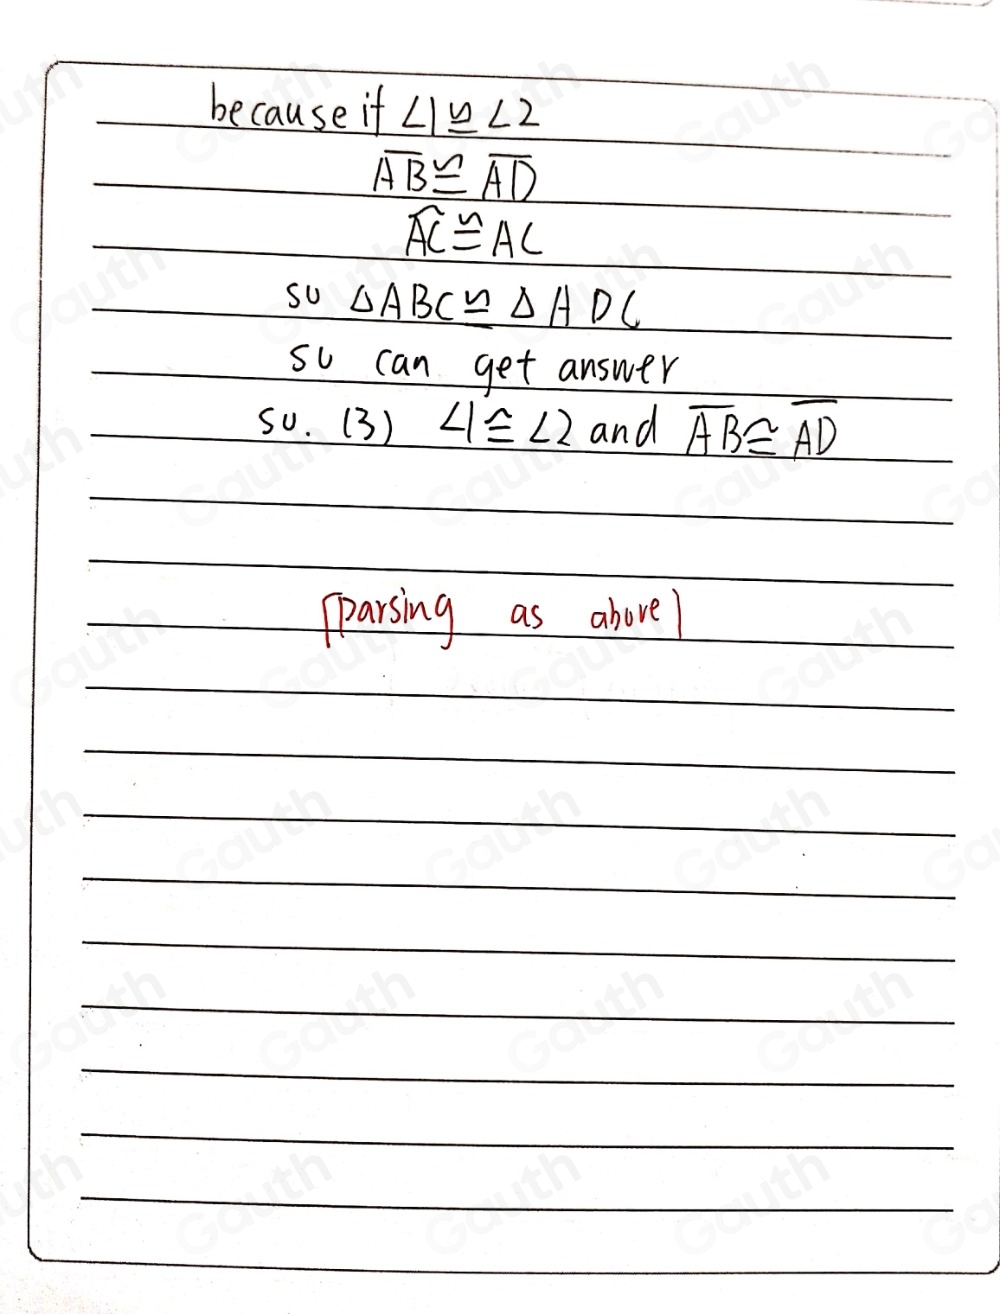 because if ∠1 ≌ ∠2
A̅B̅ ≌ A̅D̅
A̅C̅ ≌ AC
so △ABC ≌ △ADC
so can get answer
so. (3) ∠1 ≅ ∠2 and A̅B̅ ≅ A̅D̅
[parsing as above]